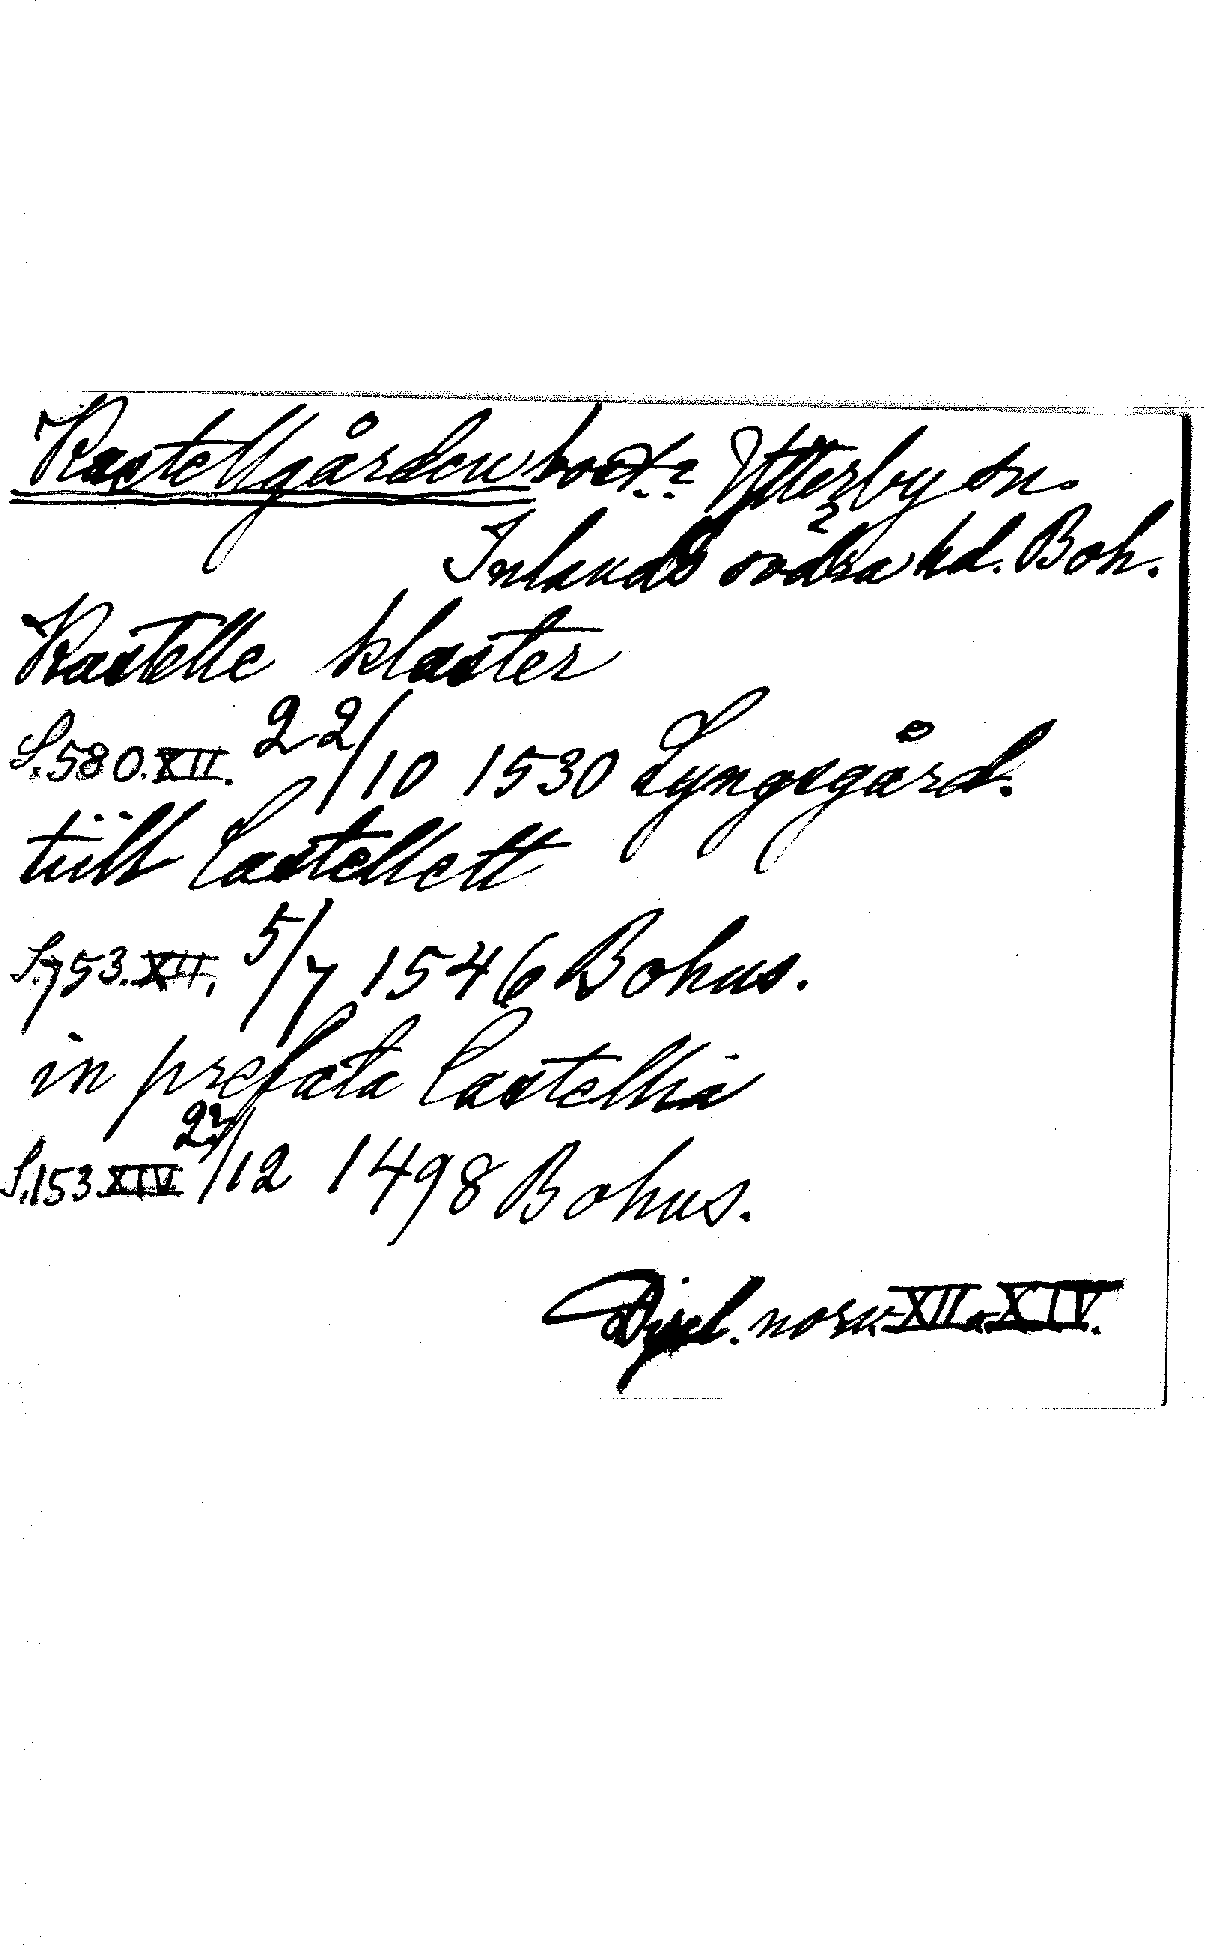 Kastellgården Ytterby sn.
Inlands södra hd. Boh.
Kastelle kloster
S. 580. XII. 22/10 1530 Lyngsgård.
tiill Castellett
S. 753. XII. 5/7 1546 Bohus.
in prefata Castellia
S. 153 XIV 27/12 1498 Bohus.
Dipl. norv. XII. XIV.